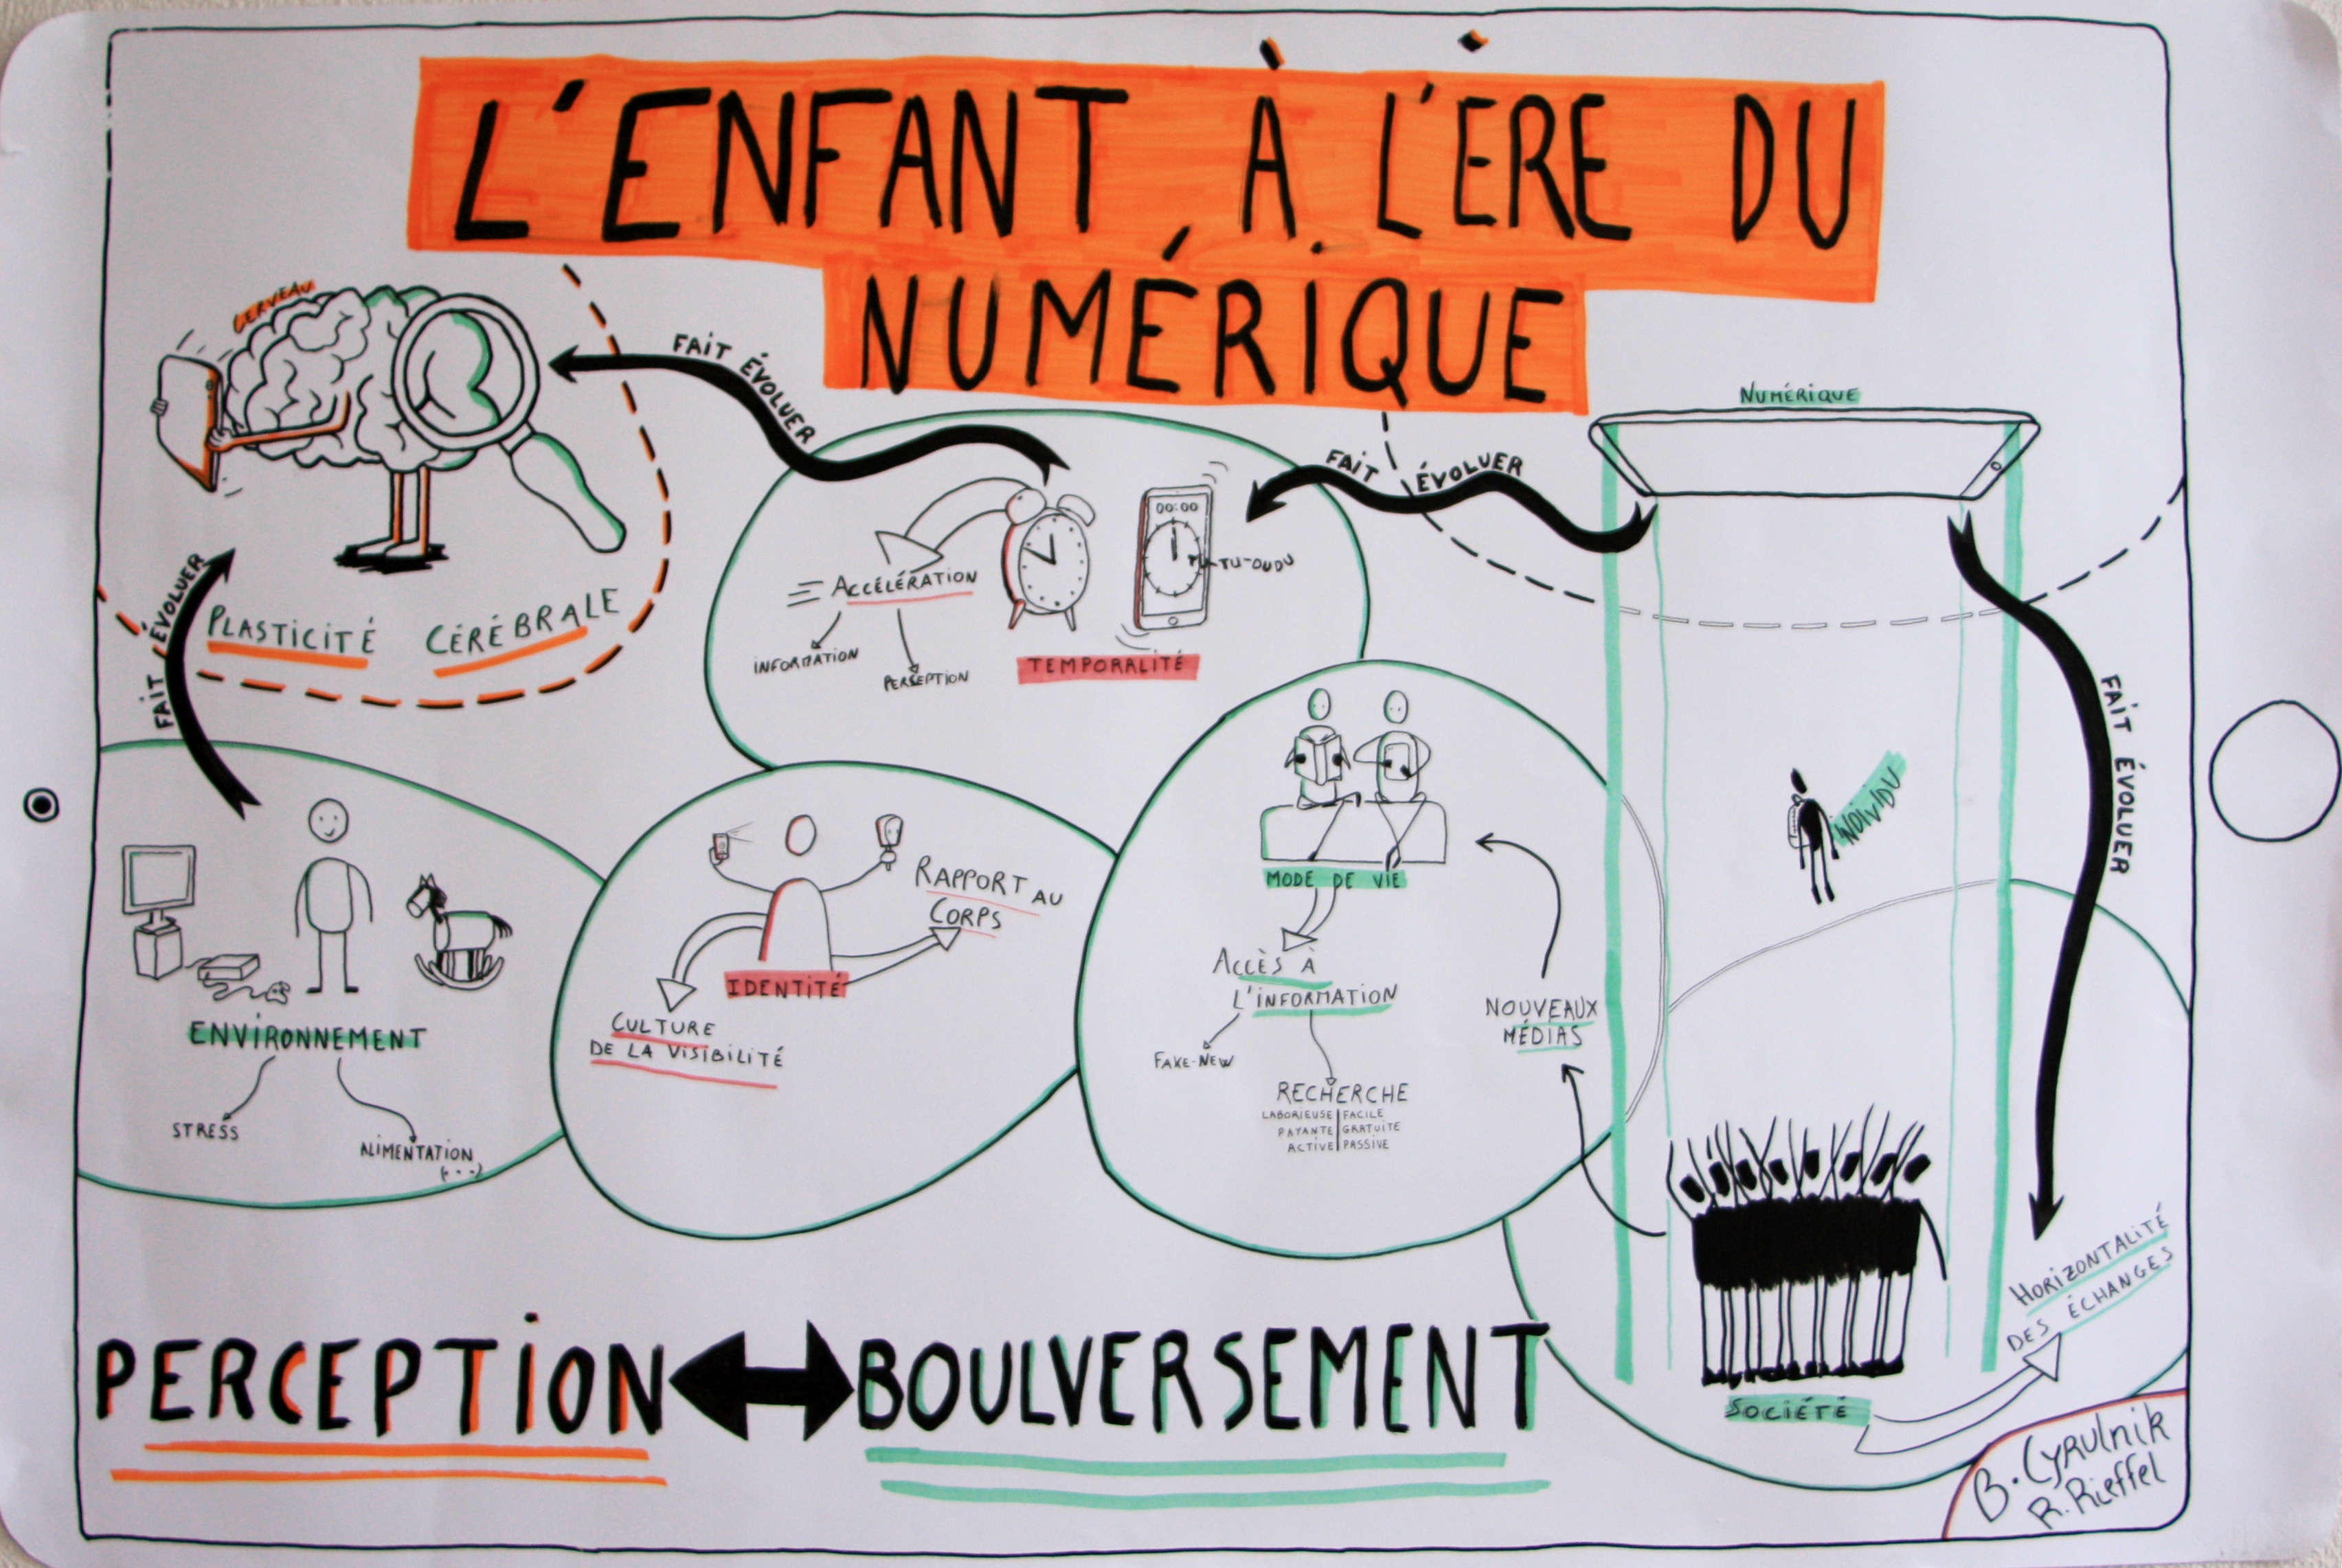 L'ENFANT À L'ÈRE DU
NUMÉRIQUE
CERVEAU
FAIT ÉVOLUER
PLASTICITÉ CÉRÉBRALE
FAIT ÉVOLUER
NUMÉRIQUE
FAIT ÉVOLUER
00:00
TU-TU-DUDU
ACCÉLÉRATION
INFORMATION
PERSEPTION
TEMPORALITÉ
FAIT ÉVOLUER
INDIVIDU
ENVIRONNEMENT
STRESS
ALIMENTATION
(...)
RAPPORT AU
CORPS
IDENTITÉ
CULTURE
DE LA VISIBILITÉ
MODE DE VIE
ACCÈS À
L'INFORMATION
FAKE-NEW
RECHERCHE
LABORIEUSE | FACILE
PAYANTE | GRATUITE
ACTIVE | PASSIVE
NOUVEAUX
MÉDIAS
HORIZONTALITÉ
DES ÉCHANGES
SOCIÉTÉ
PERCEPTION BOULVERSEMENT
B. CYRULNIK
R. RIEFFEL